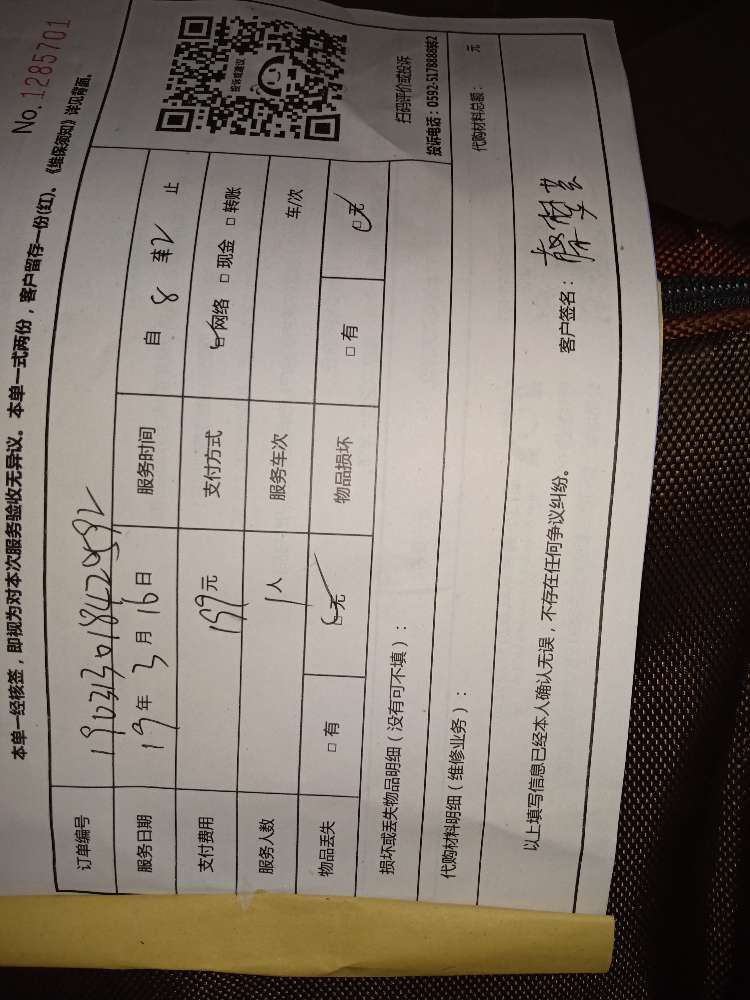 No. 1285701
本单一经核签，即视为对本次服务验收无异议。本单一式两份，客户留存一份(红)、《维保须知》详见背面。
订单编号
服务日期 19年3月16日 服务时间 自 8 至 12 止
支付费用 199元 支付方式 ☑网络 □现金 □转账
服务人数 1人 服务车次 车/次
物品丢失 □有 ☑无 物品损坏 □有 ☑无
投诉或建议
扫码评价或投诉
投诉电话：0592-5178888转2
损坏或丢失物品明细（没有可不填）：
代购材料明细（维修业务）： 代购材料总额： 元
以上填写信息已经本人确认无误，不存在任何争议纠纷。
客户签名：